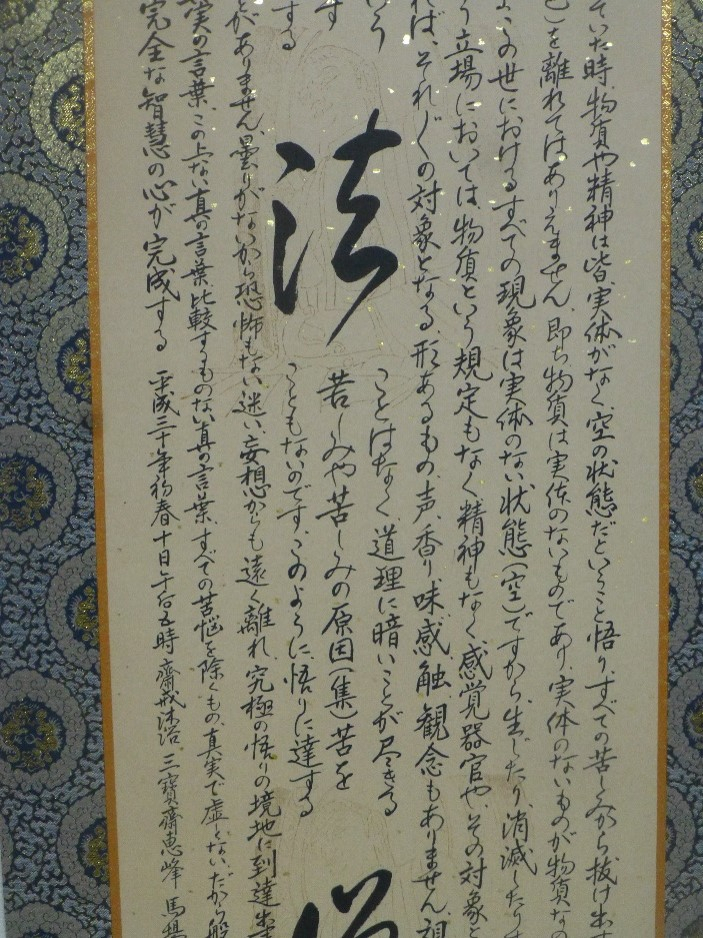 ていた時、物質や精神は皆、実体がなく、空の状態だということを悟り、すべての苦しみから抜け出す
)を離れてはありえません、即ち物質は実体のないものであり、実体のないものが物質なの
、この世におけるすべての現象は実体のない状態(空)ですから、生じたり、消滅したりす
う立場においては、物質という規定もなく、精神もなく、感覚器官や、その対象と
れば、それ〴〵の対象となる、形あるもの、声、香り、味、感触、観念もありません、
いう
ことはなく、道理に暗いことが尽きる
す
苦しみや苦しみの原因(集)苦を
する
こともないのです、このように、悟りに達する
法
僧
とがありません、曇りがないから恐怖もない、迷い、妄想からも遠く離れ、究極の悟りの境地に到達出来
真実の言葉、この上ない真の言葉、比較するものない真の言葉、すべての苦悩を除くもの、真実で虚どない、だから般
完全な智慧の心が完成する 平成三十年初春十日午后五時 齋戒沐浴 三寶齋恵峰 馬場